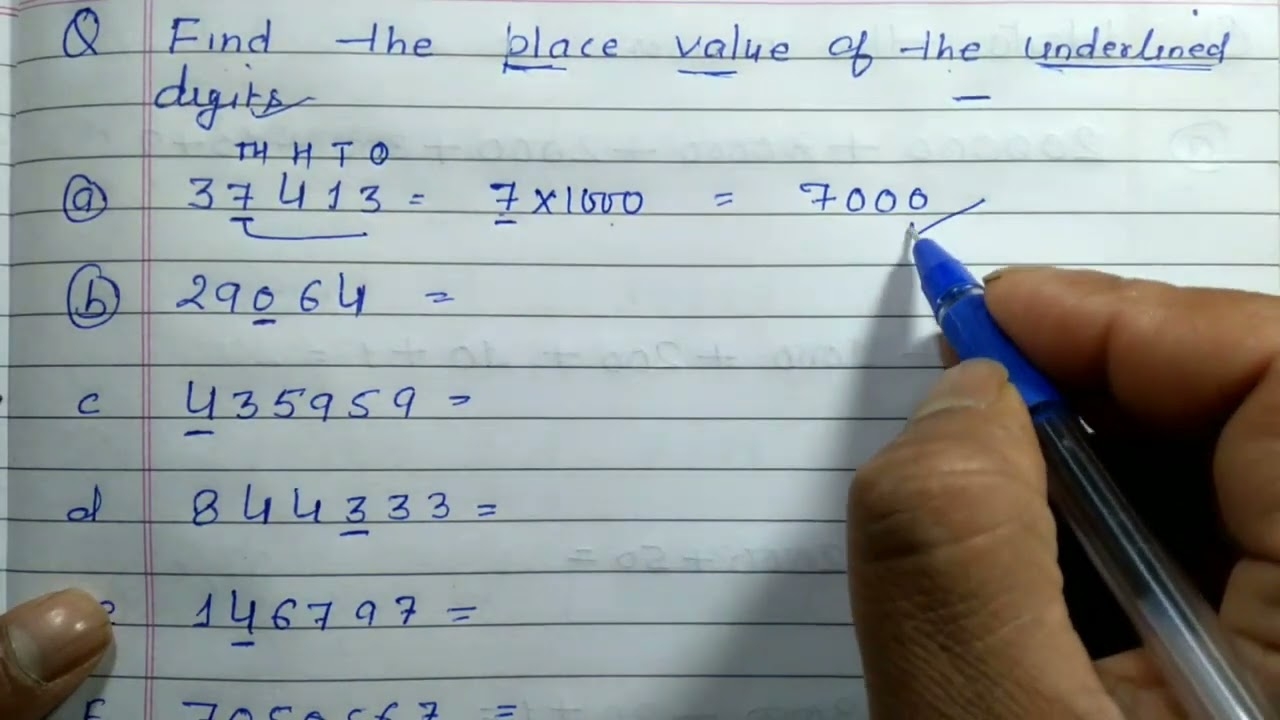 Q Find the place value of the underlined
digits
TH H T O
(a) 37413 = 7×1000 = 7000
(b) 29064 =
c 435959 =
d 844333 =
146797 =